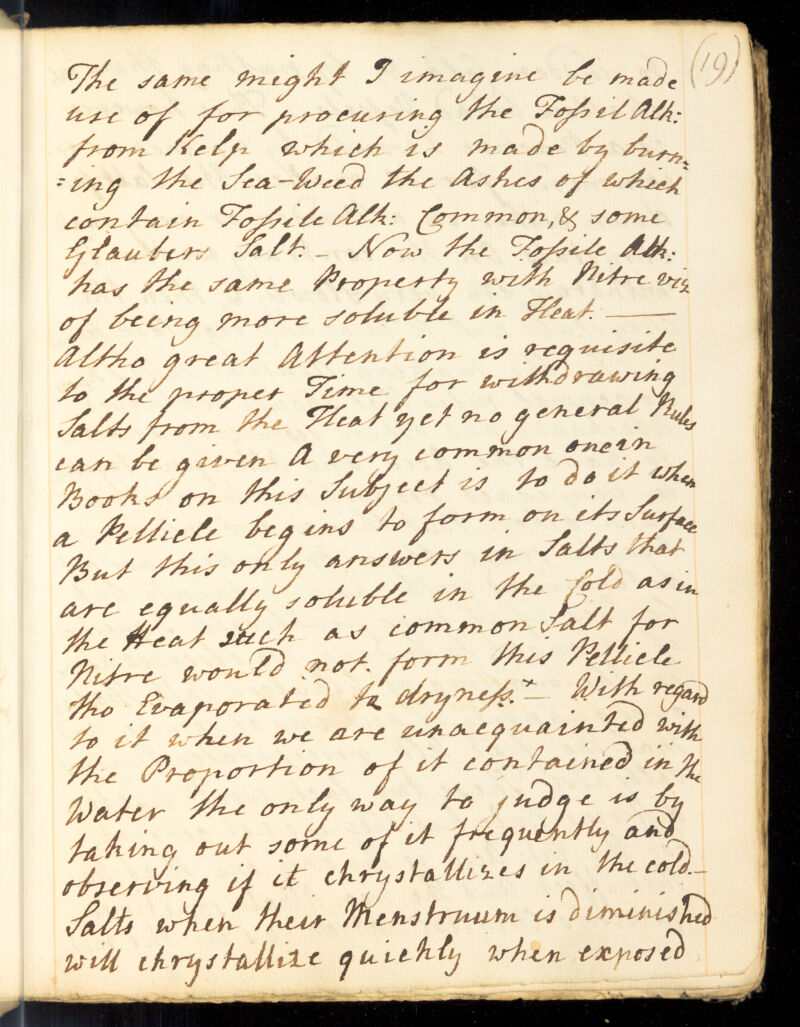 (19)
The same might I imagine be made
use of for procuring the Fossil Alk:
from Kelp which is made by burn=
=ing the Sea-Weed the Ashes of which
contain Fossile Alk: Common, & some
Glaubers Salt. - Now the Fossile Alk:
has the same Property with Nitre viz
of being more soluble in Heat. —
Altho great Attention is requisite
to the proper Time for withdrawing
Salts from the Heat yet no general Rules
can be given A very common one in
Books on this Subject is to do it when
a Pellicle begins to form on its Surface
But this only answers in Salts that
are equally soluble in the Cold as in
the Heat such as common Salt for
Nitre would not form this Pellicle
tho Evaporated to dryness.* - With regard
to it when we are unacquainted with
the Proportion of it contained in the
Water the only way to judge is by
taking out some of it frequently and
observing if it chrystallizes in the cold. -
Salts when their Menstruum is diminished
will chrystallize quickly when exposed